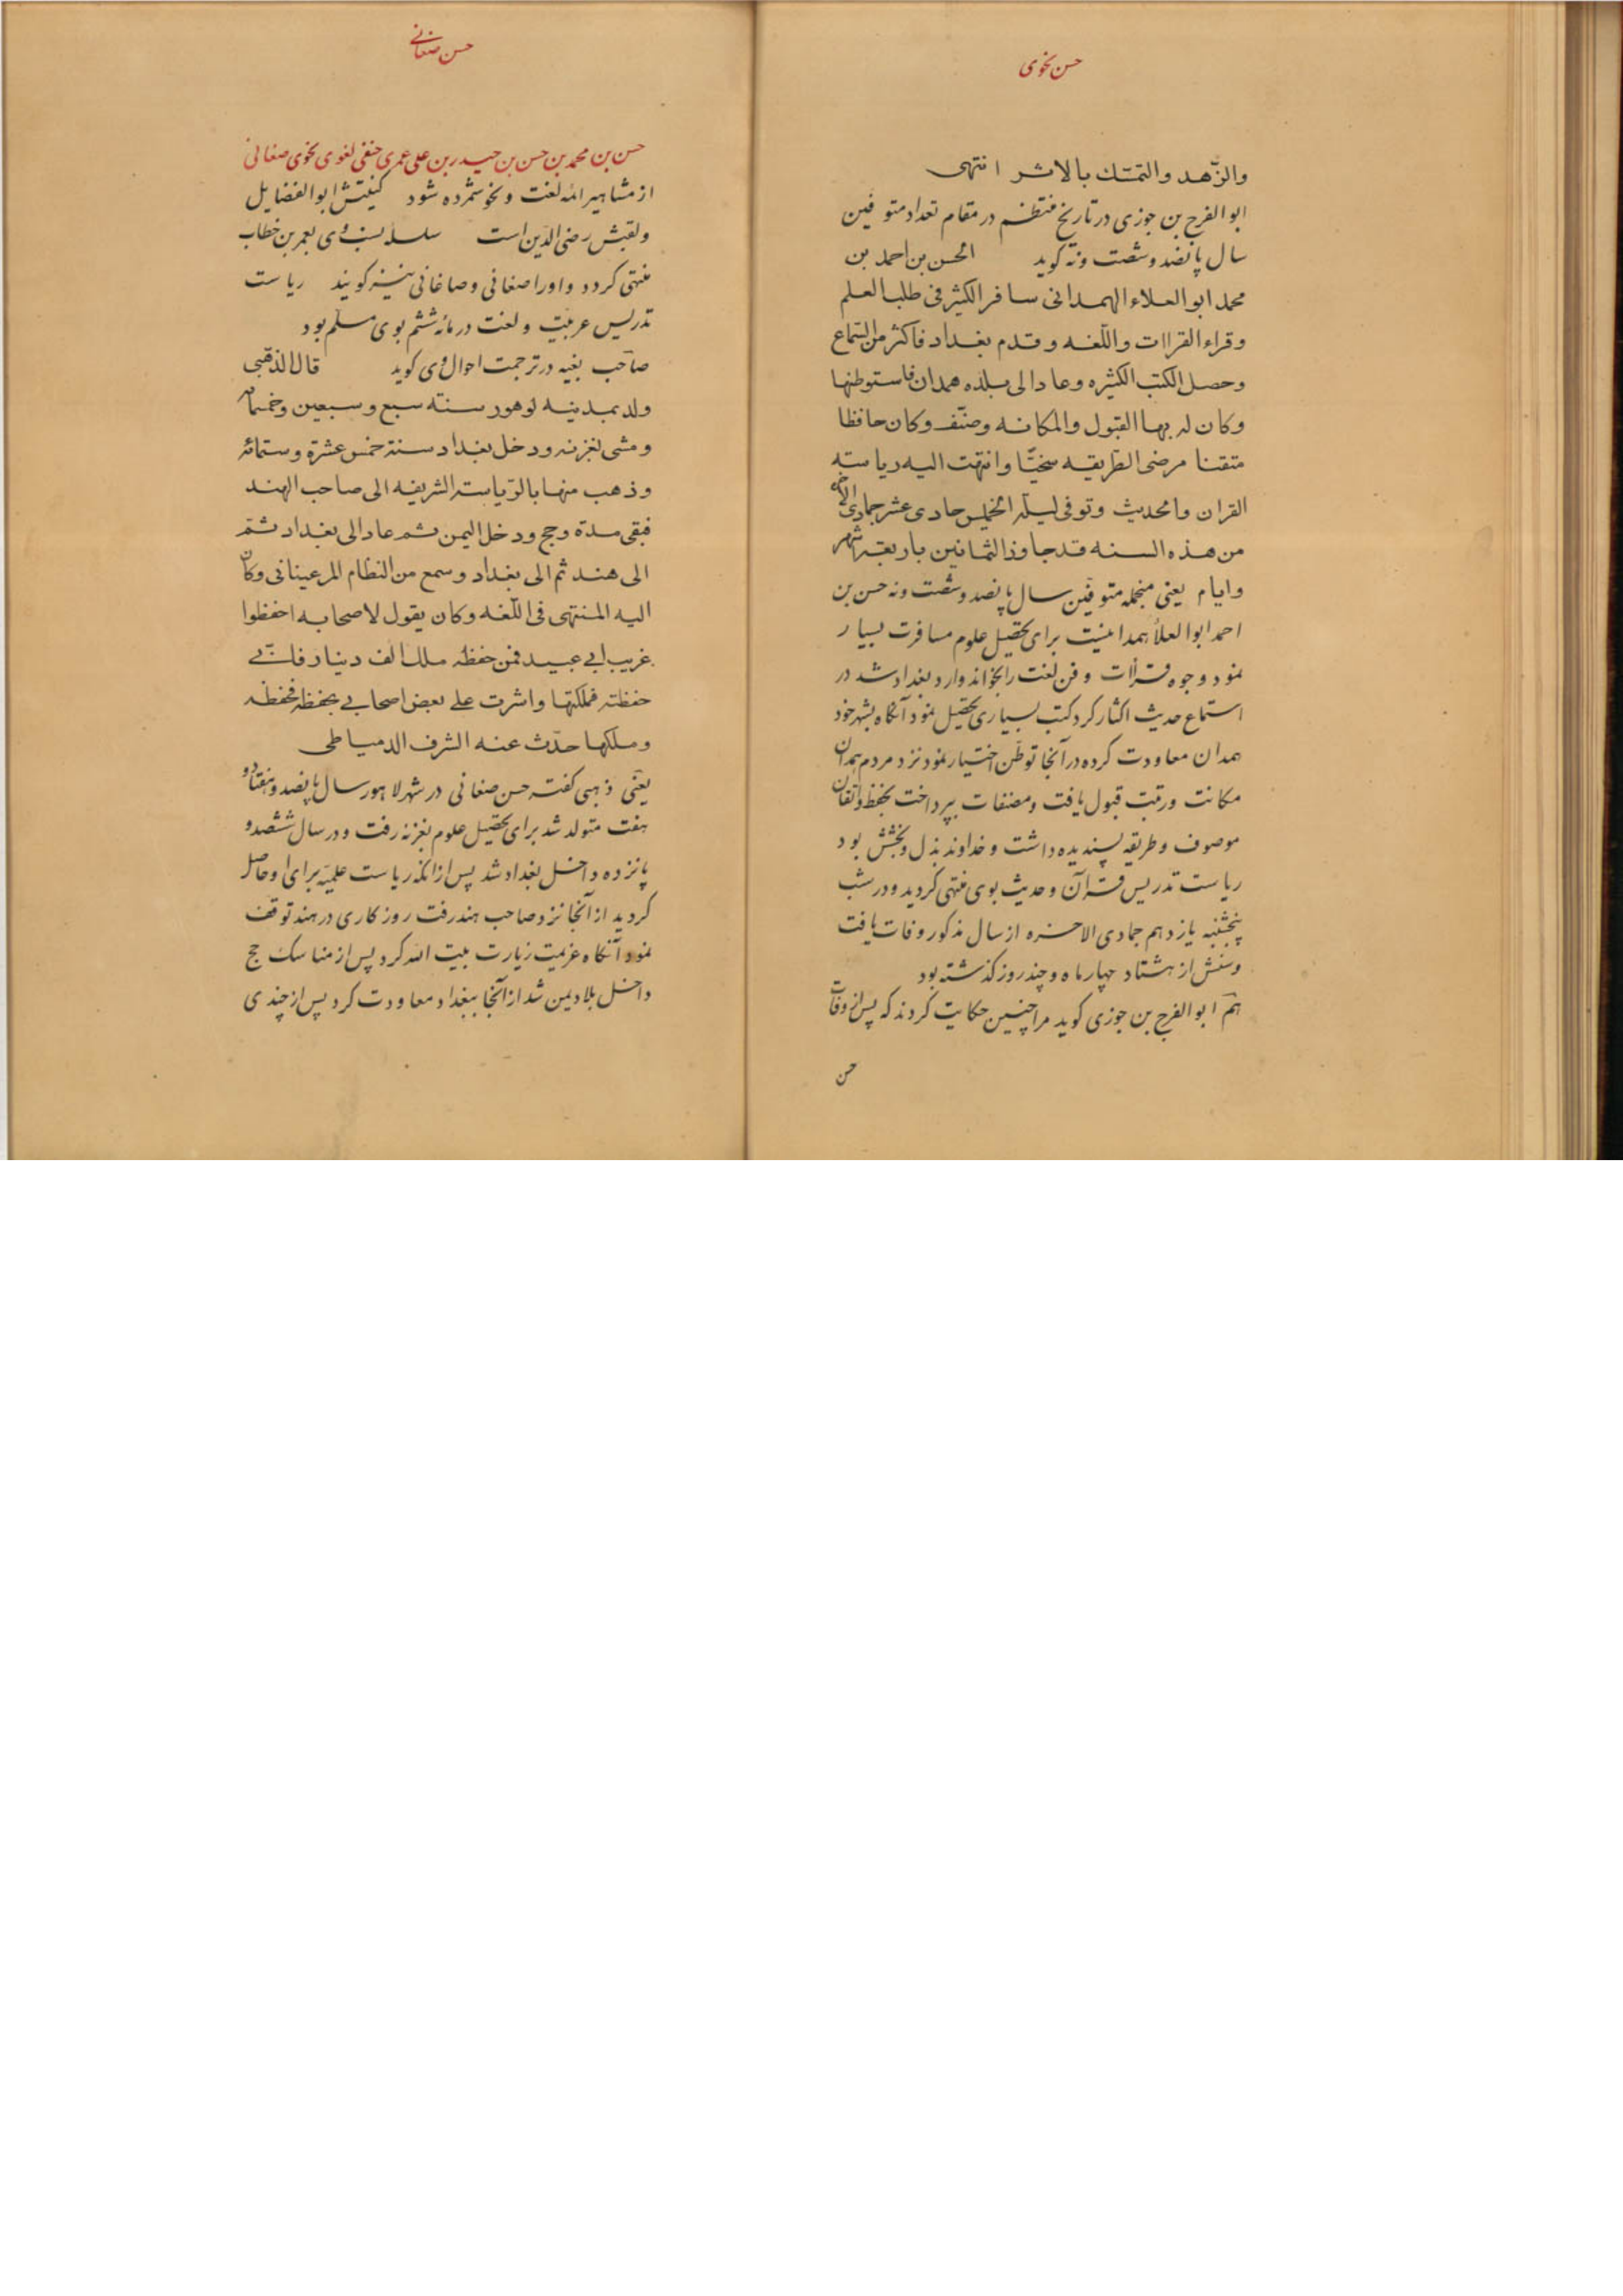 حسن نحوی
والزّهد والتمسّك بالاثر انتهی
ابو الفرج بن جوزی در تاریخ منتظم در مقام تعداد متوفین
سال پانصد و شصت و نه کوید الحسن بن احمد بن
محمد ابو العلاء الهمدانی سافر الكثیر فی طلب العلم
وقراء القراات واللّغه وقدم بغداد فاكثر من السّماع
وحصل الكتب الكثیره وعاد الی بلده همدان فاستوطنها
وكان له بها القبول والمكانه وصنّف وكان حافظا
متقنا مرضی الطّریقه سخیّا وانتهت الیه ریاسته
القران والحدیث وتوفی لیله الخمیس حادی عشر جمادی الاخره
من هذه السنه قد جاوز الثمانین باربعه اشهر
وایام یعنی منجمله متوفین سال پانصد و شصت و نه حسن بن
احمد ابو العلاء همدانیست برای تحصیل علوم مسافرت بسیار
نمود وجوه قرآات و فن لغت را بخواند وارد بغداد شد در
استماع حدیث اکثار کرد کتب بسیاری تحصیل نمود آنکاه بشهر خود
همدان معاودت کرده در آنجا توطّن اختیار نمود نزد مردم همدان
مکانت و رتبت قبول یافت و مصنفات بپرداخت بحفظ و اتقان
موصوف و طریقه پسندیده داشت و خداوند بذل و بخشش بود
ریاست تدریس قرآن و حدیث بوی منتهی کردید و در شب
پنجشنبه یازدهم جمادی الاخره از سال مذکور وفات یافت
و سنش از هشتاد چهار ماه و چند روز کذشته بود
هم ابو الفرج بن جوزی کوید مرا چنین حکایت کردند که پس از وفات
حسن
حسن صغانی
حسن بن محمد بن حسن بن حیدر بن علی عمری حنفی لغوی نحوی صغانی
از مشاهیر ائمه لغت و نحو شمرده شود کنیتش ابو الفضایل
و لقبش رضی الدّین است سلسله نسب وی بعمر بن خطاب
منتهی کردد و او را صغانی و صاغانی نیز کویند ریاست
تدریس عربیّت و لغت در مائه ششم بوی مسلّم بود
صاحب بغیه در ترجمت احوال وی کوید قال الذّهبی
ولد بمدینه لوهور سنته سبع وسبعین وخمسمائه
ومشی لغزنه ودخل بغداد سنة خمس عشرة وستمائه
وذهب منها بالرّیاسته الشریفه الی صاحب الهند
فبقی مدة وحج ودخل الیمن ثم عاد الی بغداد ثمّ
الی هند ثم الی بغداد وسمع من النظام المرعینانی وكان
الیه المنتهی فی اللّغه وكان یقول لاصحابه احفظوا
غریب ابی عبید فمن حفظه ملك الف دینار فانّی
حفظته فملكتها واشرت علی بعض اصحابی بحفظه فحفظه
وملكها حدّث عنه الشرف الدمیاطی
یعنی ذهبی کفته حسن صغانی در شهر لاهور سال پانصد و هفتاد و
هفت متولد شد برای تحصیل علوم بغزنه رفت و در سال ششصد و
پانزده داخل بغداد شد پس از آنکه ریاست علمیّه برای او حاصل
کردید از آنجا نزد صاحب هند رفت روزکاری در هند توقف
نمود آنکاه عزیمت زیارت بیت الله کرد پس از مناسک حج
داخل بلاد یمن شد از آنجا ببغداد معاودت کرد پس از چندی